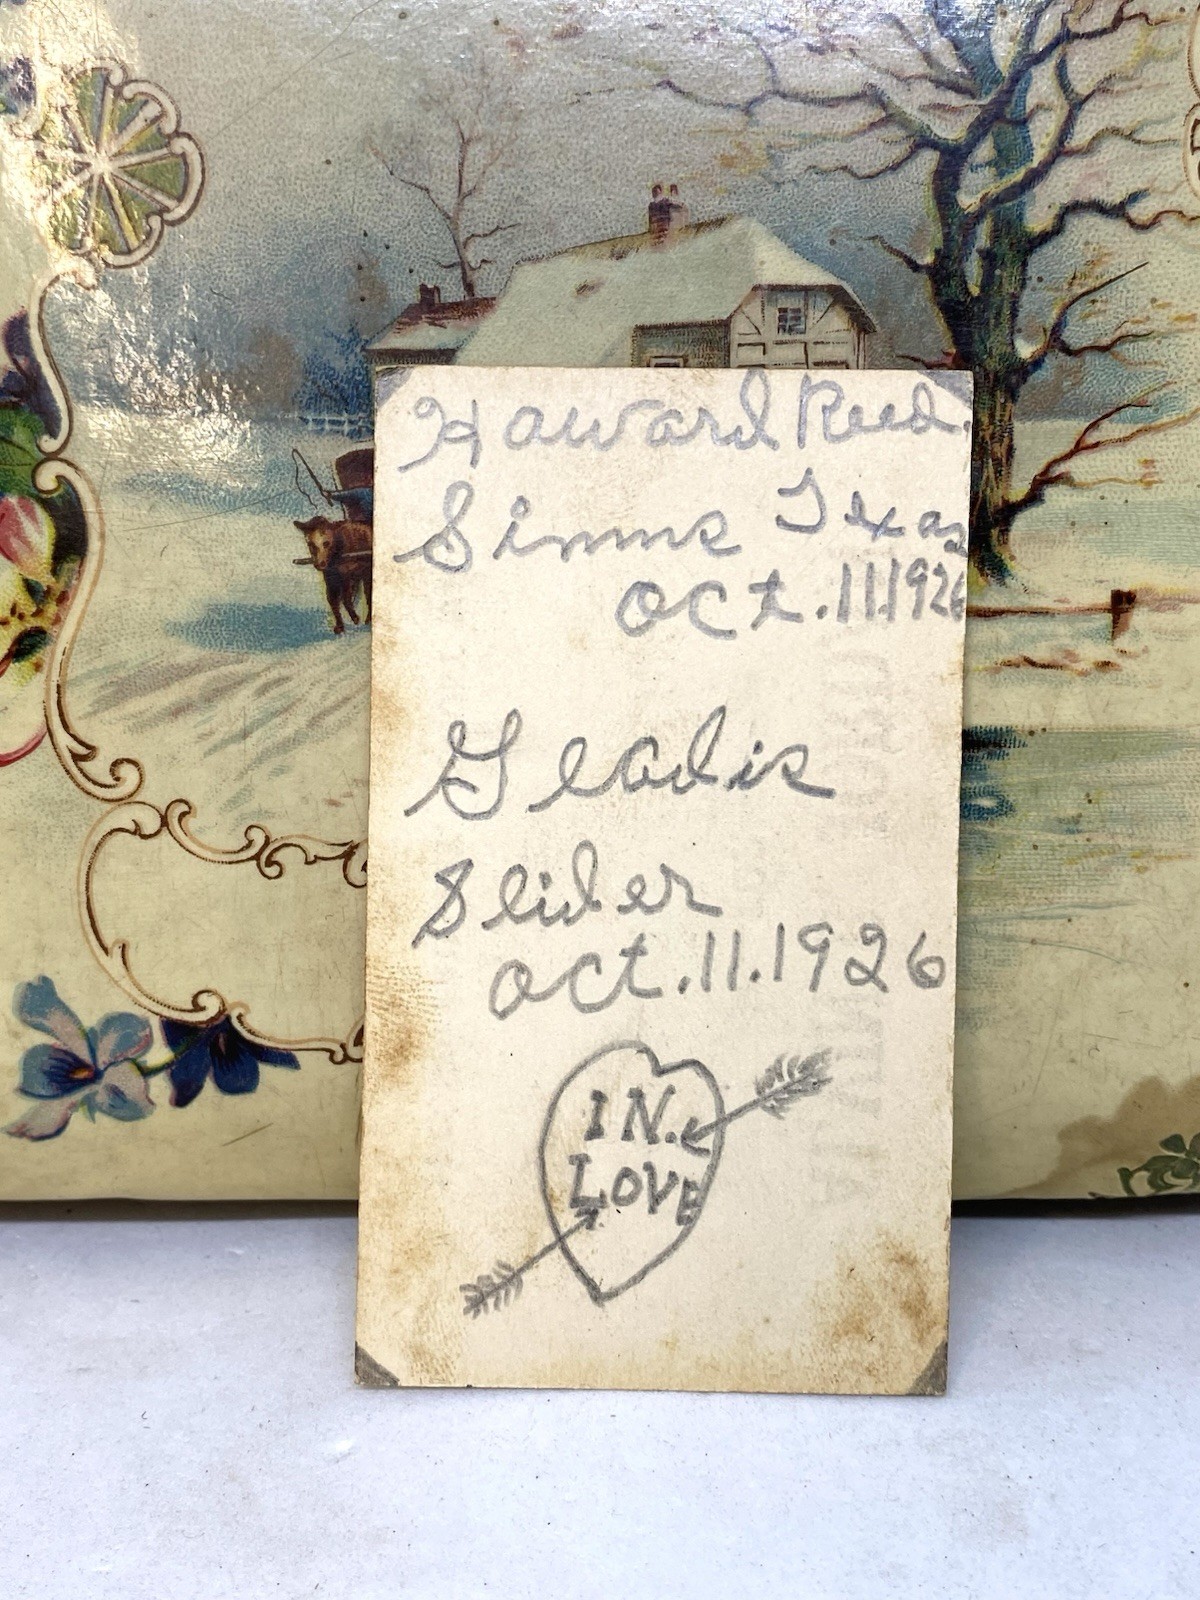 Haward Reed.
Simms Texas
oct. 11.1926
Gladis
Slider
oct. 11. 1926
IN.
LOVE